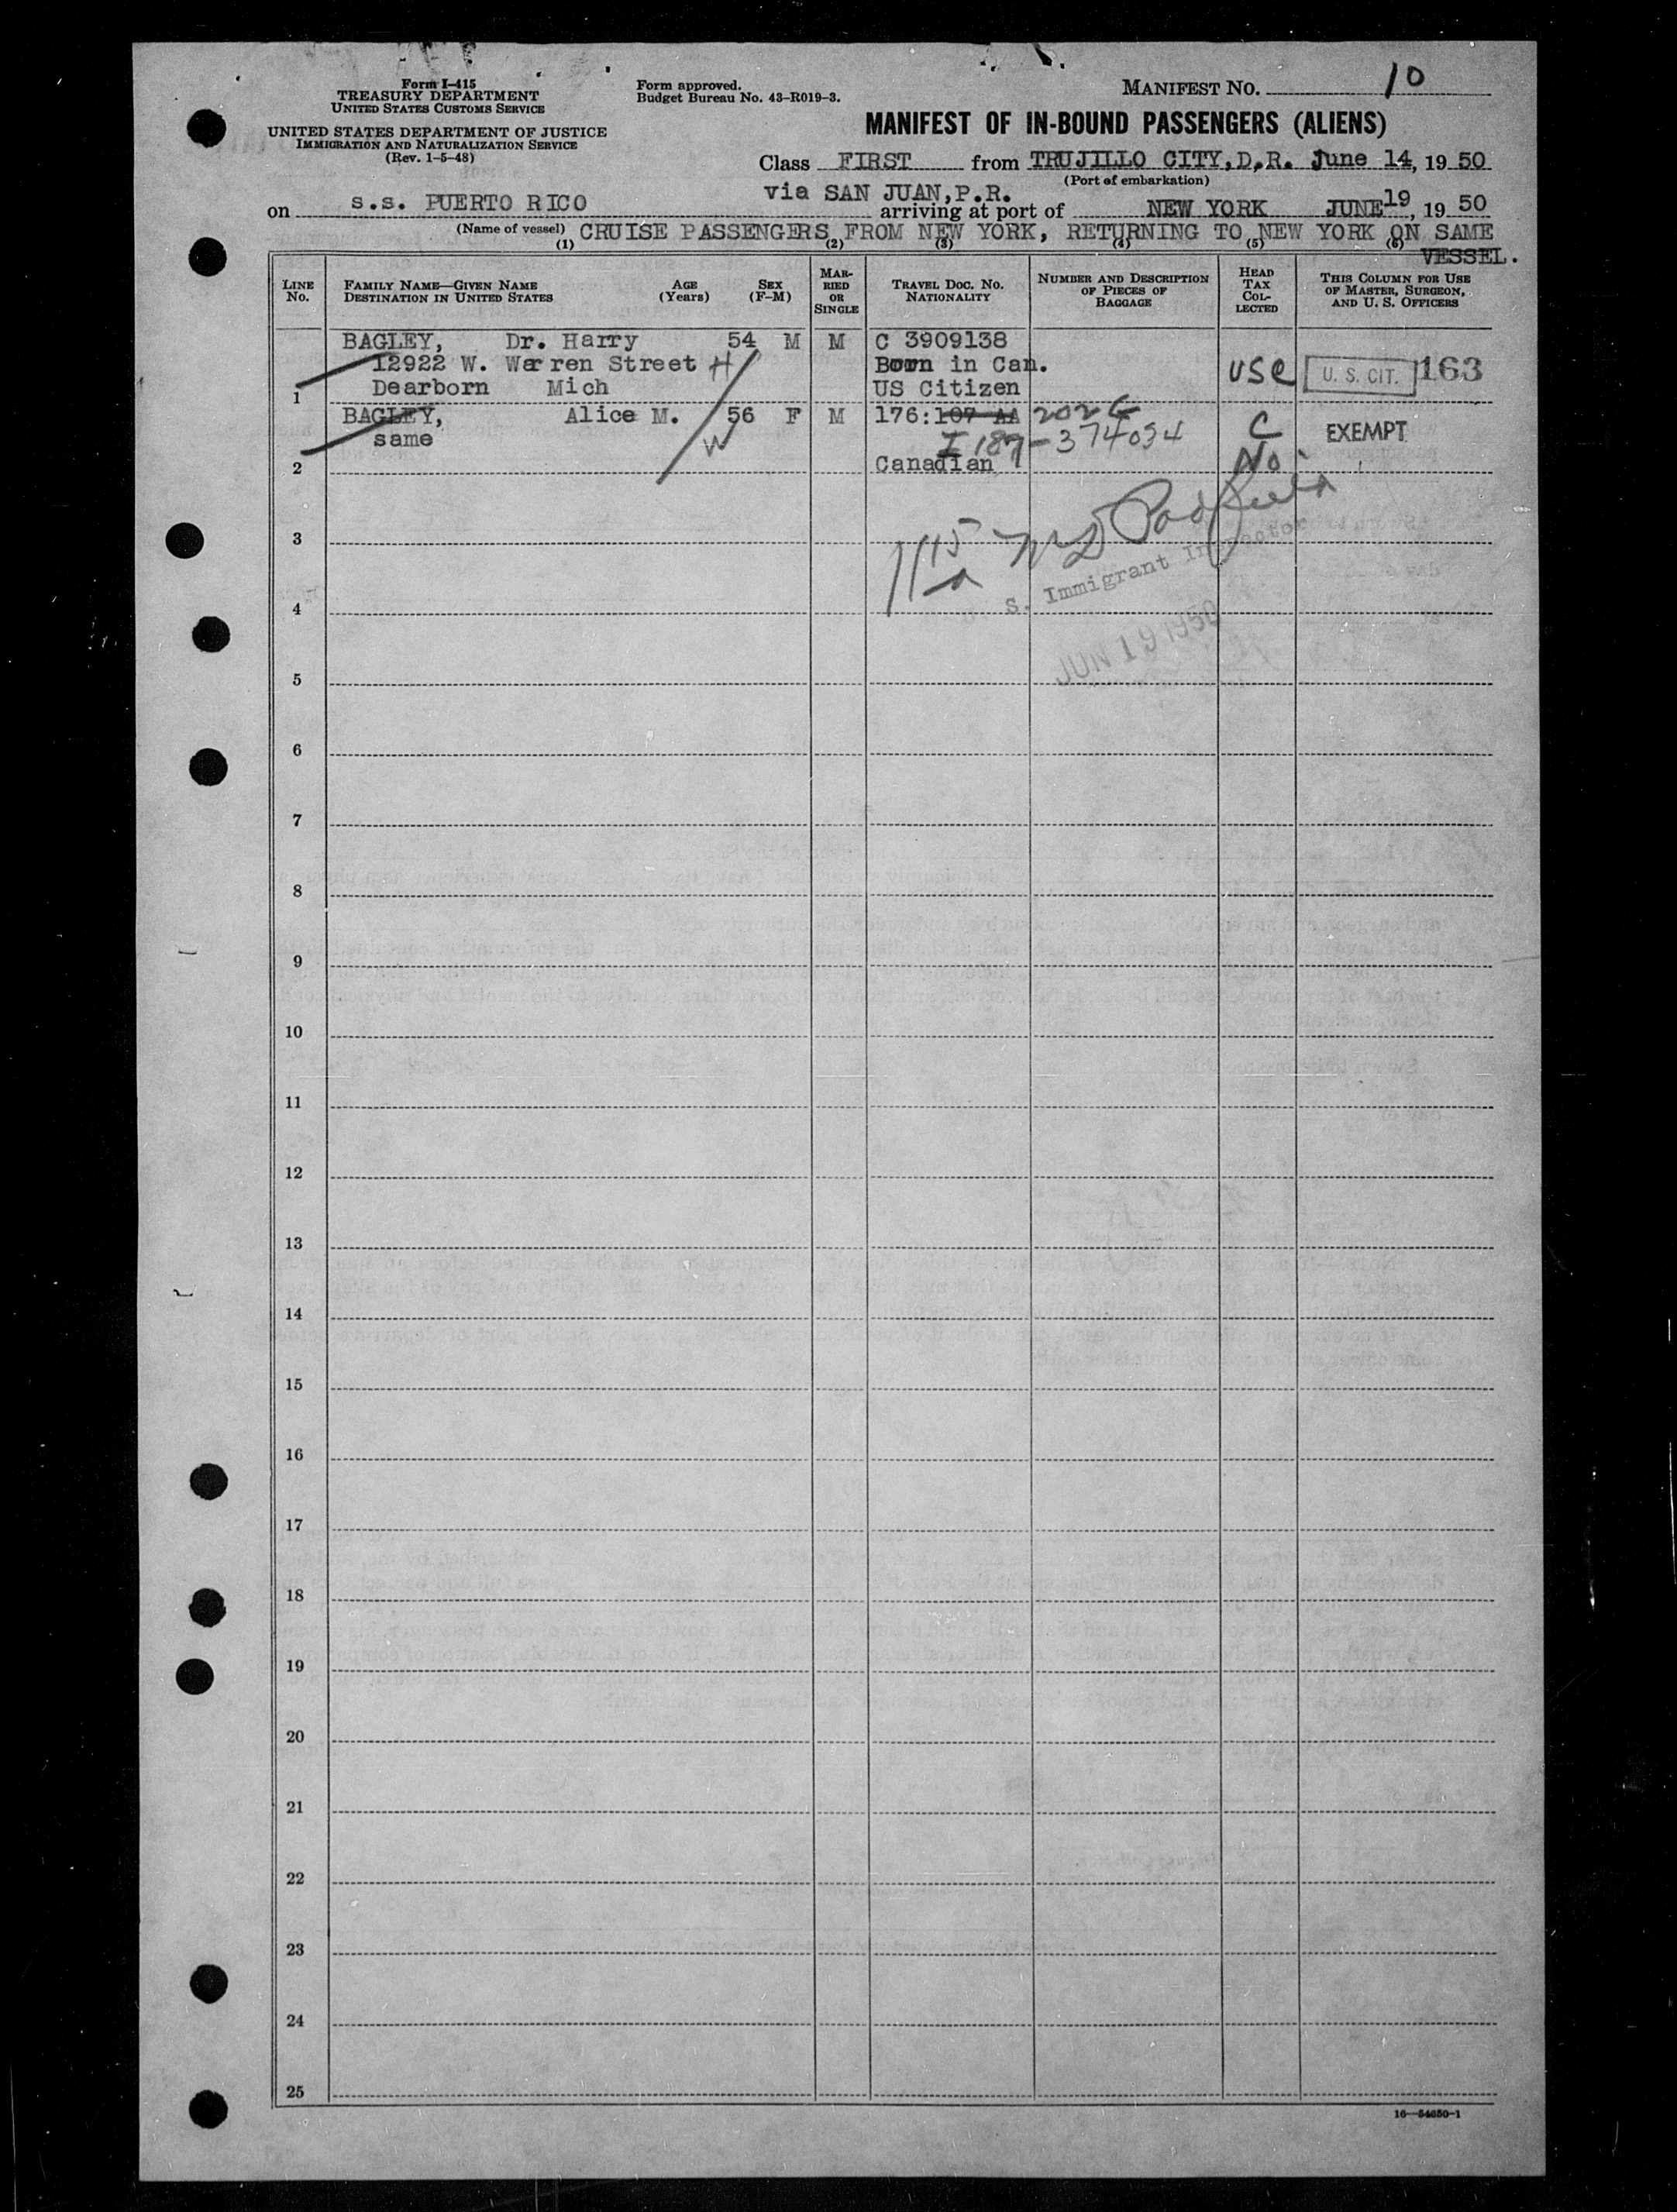 Form I-415
TREASURY DEPARTMENT
UNITED STATES CUSTOMS SERVICE
UNITED STATES DEPARTMENT OF JUSTICE
IMMIGRATION AND NATURALIZATION SERVICE
(Rev. 1-5-48)
Form approved.
Budget Bureau No. 43-R019-3.
MANIFEST NO. 10
MANIFEST OF IN-BOUND PASSENGERS (ALIENS)
Class FIRST from TRUJILLO CITY, D.R. June 14, 19 50
(Port of embarkation)
via SAN JUAN, P.R.
on s.s. PUERTO RICO arriving at port of NEW YORK JUNE 19, 19 50
(Name of vessel) CRUISE PASSENGERS FROM NEW YORK, RETURNING TO NEW YORK ON SAME
VESSEL.
(1) (2) (3) (4) (5) (6)
LINE No. FAMILY NAME—GIVEN NAME DESTINATION IN UNITED STATES AGE (Years) SEX (F-M) MARRIED OR SINGLE TRAVEL DOC. NO. NATIONALITY NUMBER AND DESCRIPTION OF PIECES OF BAGGAGE HEAD TAX COLLECTED THIS COLUMN FOR USE OF MASTER, SURGEON, AND U. S. OFFICERS
BAGLEY, Dr. Harry 54 M M C 3909138
12922 W. Warren Street H Born in Can. USC U. S. CIT. 163
1 Dearborn Mich US Citizen
BAGLEY, Alice M. 56 F M 176:107 AA 202 G
same W I 187-374034 C EXEMPT
2 Canadian No
3
1115 a
S. Immigrant Inspector
4
JUN 19 1950
5
6
7
8
9
10
11
12
13
14
15
16
17
18
19
20
21
22
23
24
25
16—54650-1